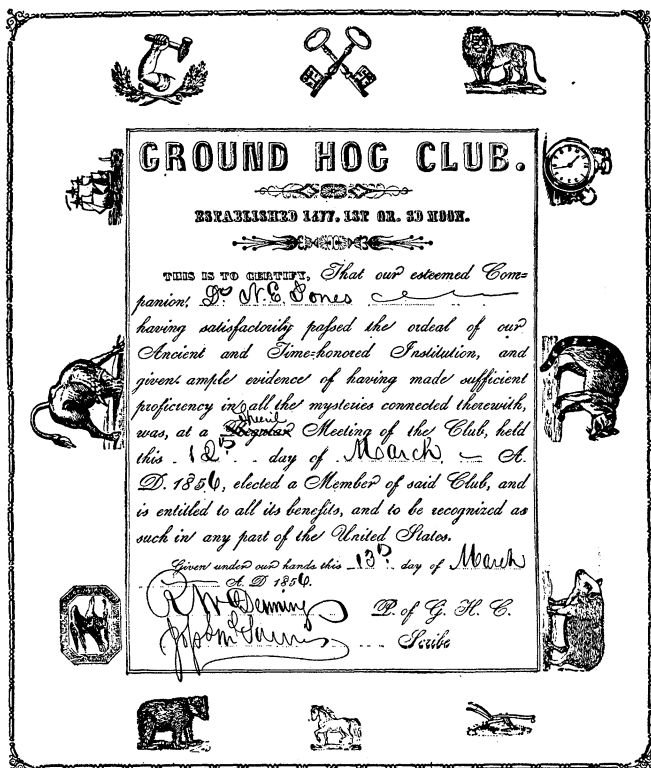 GROUND HOG CLUB.
ESTABLISHED 1477. 1ST QR. 3D MOON.
THIS IS TO CERTIFY, That our esteemed Com=
panion, Dr N. E. Jones
having satisfactorily passed the ordeal of our
Ancient and Time=honored Institution, and
given ample evidence of having made sufficient
proficiency in all the mysteries connected therewith,
was, at a Regular Meeting of the Club, held
this 12th day of March A.
D. 1856, elected a Member of said Club, and
is entitled to all its benefits, and to be recognized as
such in any part of the United States.
Given under our hands this 13th day of March
A. D. 1856.
P. of G. H. C.
Scribe